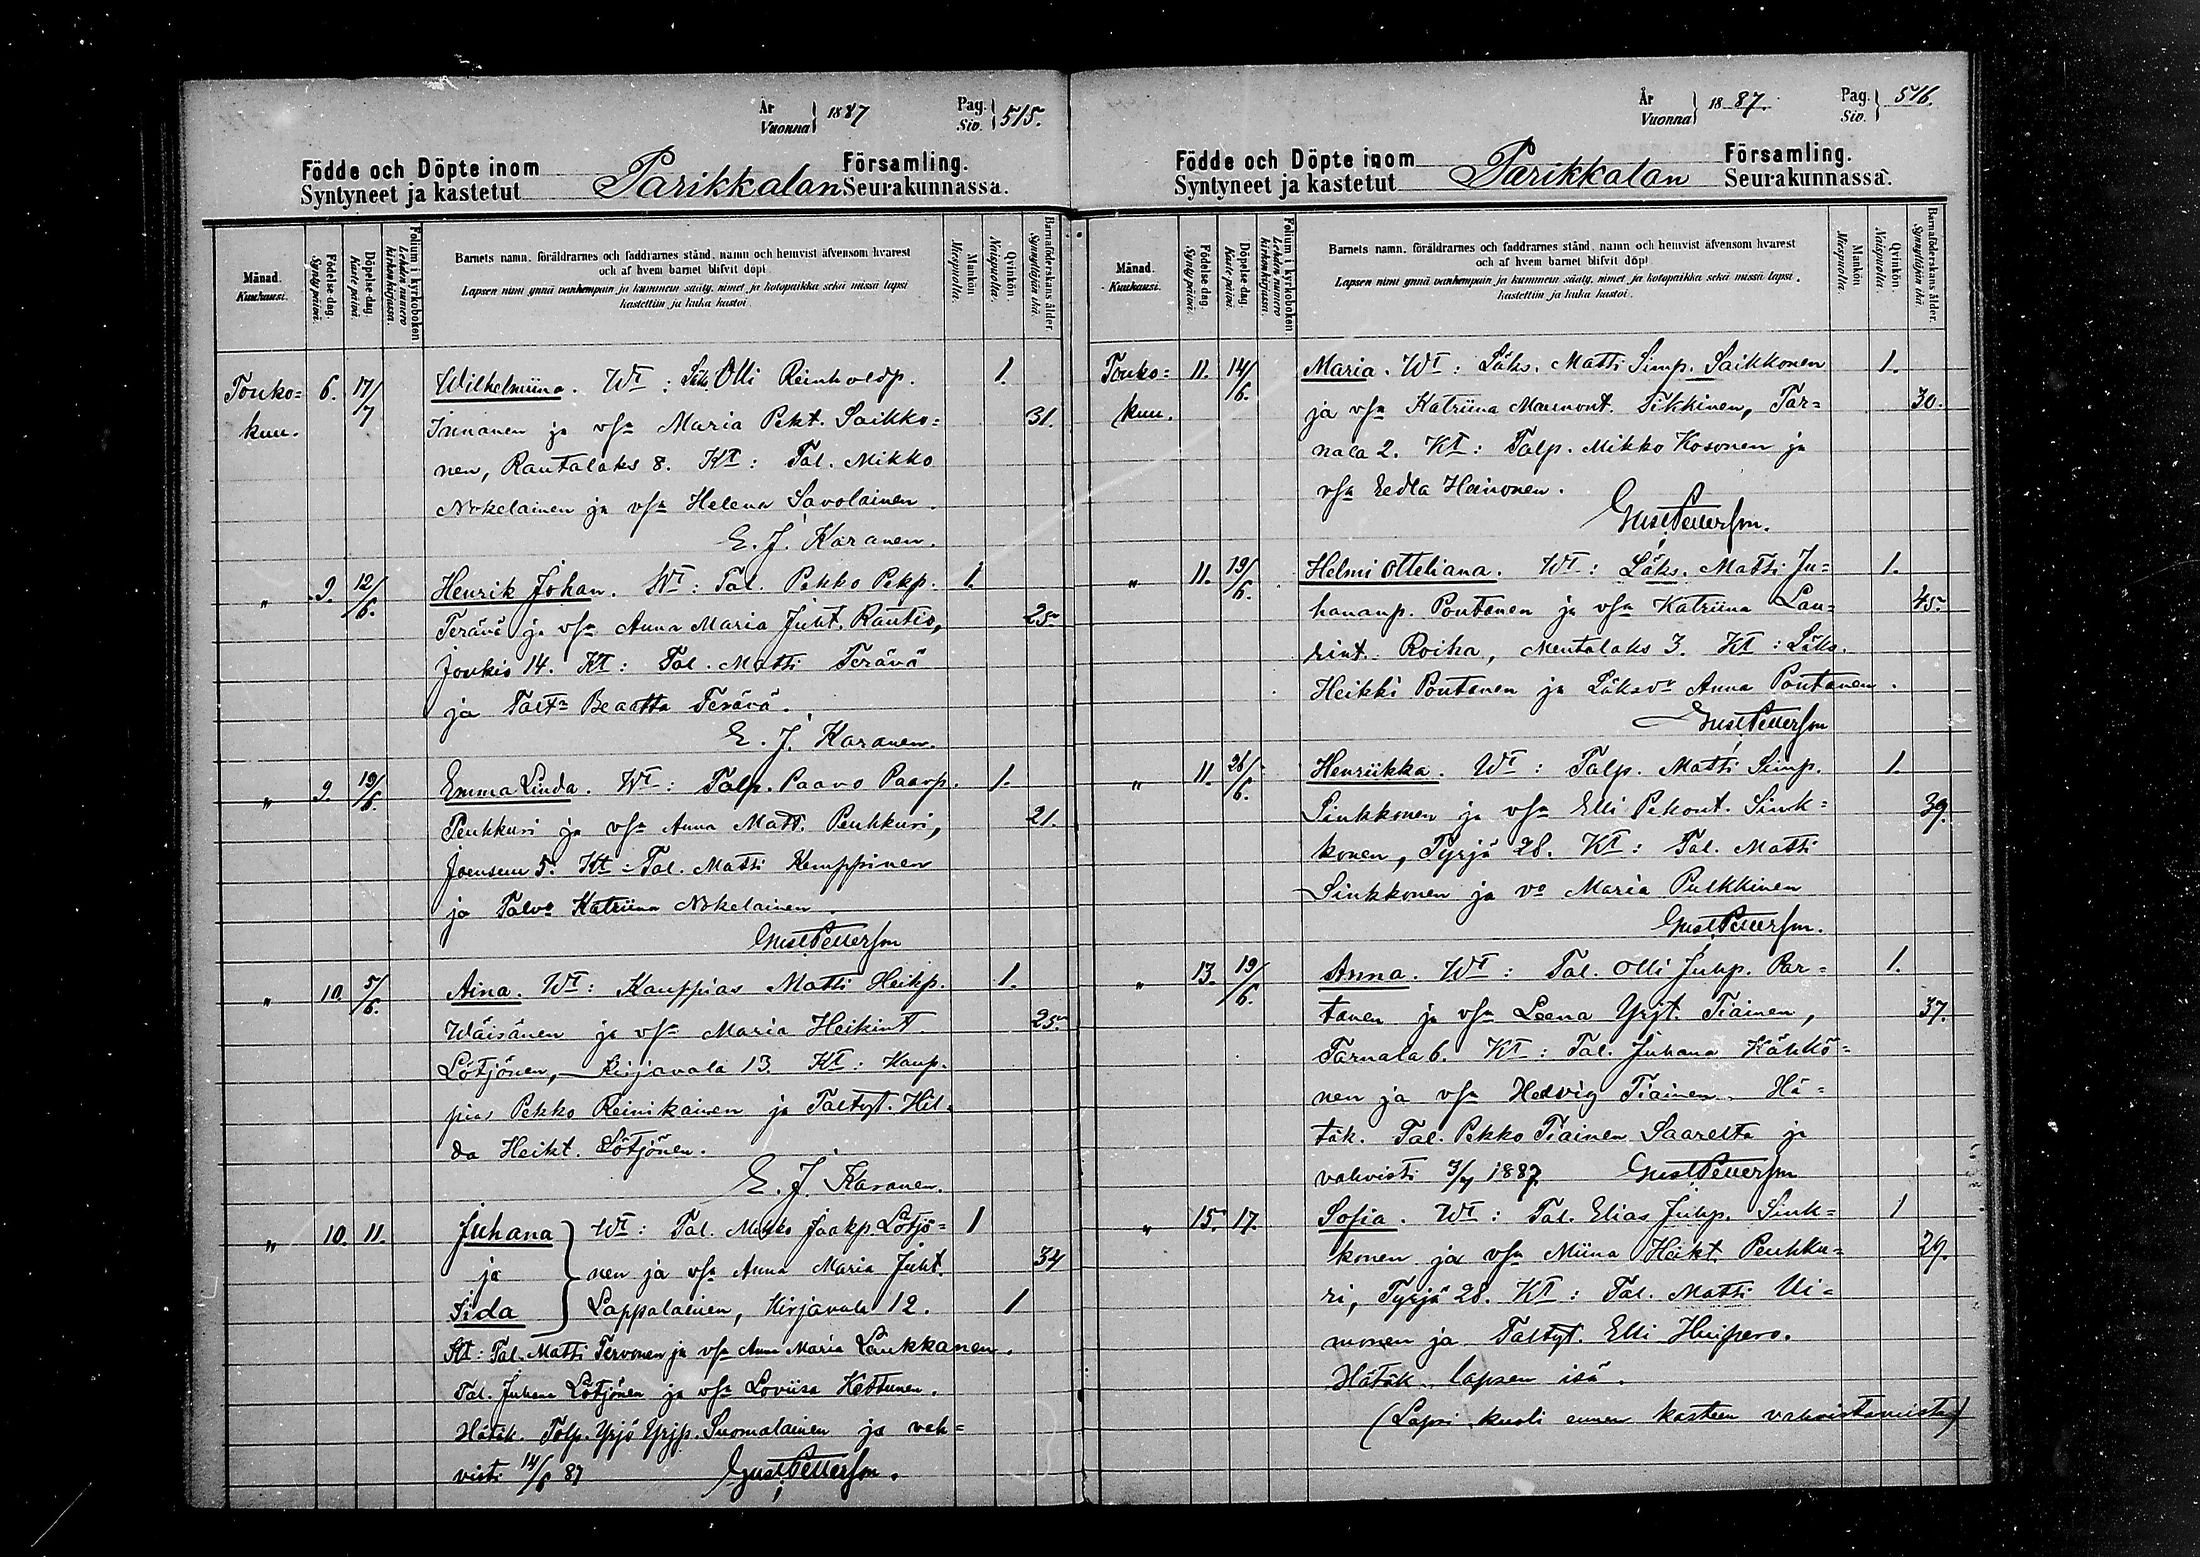 År
Vuonna } 1887
Pag.
Siv. } 515.
Födde och Döpte inom Parikkalan Församling.
Syntyneet ja kastetut Seurakunnassa.
Månad.
Kuukausi.
Födelse-dag.
Synty päivä.
Döpelse-dag.
Kaste päivä.
Folium i kyrkoboken
Lehden numero kirkonkirjassa.
Barnets namn, föräldrarnes och faddrarnes stånd, namn och hemvist äfvensom hvarest
och af hvem barnet blifvit döpt.
Lapsen nimi ynnä vanhempain ja kummein sääty, nimet ja kotopaikka sekä missä lapsi
kastettiin ja kuka kastoi.
Mankön
Miespuolia.
Qvinkön.
Naispuolia.
Barnaföderskans ålder.
Synnyttäjän ikä.
Touko= 6. 17/7 Wilhelmiina. Wt: Läks Olli Reinholdp. 1.
kuu. Innanen ja vsa Maria Pekt. Saikko= 31.
nen, Rautalaks 8. Kt: Tal. Mikko
Nokelainen ja vsa Helena Savolainen.
E. J. Karanen.
" 9. 12/6. Henrik Johan. Wt: Tal. Pekko Pekp. 1.
Terävä ja vsa Anna Maria Juht. Rautio, 25
Joukio 14. Kt: Tal. Matti Terävä
ja Beaatta Terävä.
E. J. Karanen.
" 9. 19/6. Emma Linda. Wt: Talp. Paavo Paavp. 1.
Peuhkuri ja vsa Anna Matt. Peuhkuri, 21.
Joensuu 5. Kt: Tal. Matti Kemppinen
ja Talvo Katriina Nokelainen.
Gust Petterson
" 10. 5/6. Aina. Wt: Kauppias Matti Heikp. 1.
Wäisänen ja vsa Maria Heikint. 25
Lötjönen, Kirjavala 13. Kt: Kaup-
pias Pekko Reinikainen ja Taltyt. Hil-
da Heikt. Lötjönen.
E. J. Karanen.
" 10. 11. Juhana } Wt: Tal. Mikko Jaakp. Lötjö= 1
ja nen ja vsa Anna Maria Juht. 34
Iida Lappalainen, Kirjavala 12. 1
Kt: Tal. Matti Tervonen ja vsa Anna Maria Laukkanen.
Tal. Juhana Lötjönen ja vsa Loviisa Kettunen.
Hätäk. Talp. Yrjö Yrjp. Suomalainen ja vah=
visti 14/6 87 Gust Petterson.
År
Vuonna } 1887.
Pag.
Siv. } 516.
Födde och Döpte inom Parikkalan Församling.
Syntyneet ja kastetut Seurakunnassa.
Månad.
Kuukausi.
Födelse-dag.
Synty päivä.
Döpelse-dag.
Kaste päivä.
Folium i kyrkoboken
Lehden numero kirkonkirjassa.
Barnets namn, föräldrarnes och faddrarnes stånd, namn och hemvist äfvensom hvarest
och af hvem barnet blifvit döpt.
Lapsen nimi ynnä vanhempain ja kummein sääty, nimet ja kotopaikka sekä missä lapsi
kastettiin ja kuka kastoi.
Mankön
Miespuolia.
Qvinkön.
Naispuolia.
Barnaföderskans ålder.
Synnyttäjän ikä.
Touko= 11. 14/6. Maria. Wt: Läks. Matti Simp. Saikkonen 1.
kuu. ja vsa Katriina Maunont. Sikkinen, Tar= 30.
nala 2. Kt: Talp. Mikko Kosonen ja
vsa Eedla Heinonen.
Gust Petterson.
" 11. 19/6. Helmi Otteliana. Wt: Läks. Matti Ju= 1.
hananp. Pontanen ja vsa Katriina Lau= 45.
rint. Roiha, Mentalaks 3. Kt: Läks.
Heikki Pontanen ja Läksvo Anna Pontanen.
Gust Petterson
" 11. 26/6. Henriikka. Wt: Talp. Matti Simp. 1.
Sinkkonen ja vsa Elli Pekont. Sink= 39.
konen, Tyrjä 28. Kt: Tal. Matti
Sinkkonen ja vo Maria Pulkkinen
Gust Petterson.
" 13. 19/6. Anna. Wt: Tal. Olli Juhp. Par= 1.
tanen ja vsa Leena Yrjt. Tiainen, 37.
Tarnala 6. Kt: Tal. Juhana Kähkö=
nen ja vsa Hedvig Tiainen. Hä=
täk. Tal. Pekko Tiainen Saarelta ja
vahvisti 3/7 1887 Gust Petterson
" 15. 17. Sofia. Wt: Tal. Elias Juhp. Sink= 1
konen ja vsa Miina Heikt. Peuhku= 29.
ri, Tyrjä 28. Kt: Tal. Matti Ui=
monen ja Taltyt. Elli Huipero.
Hätäk. lapsen isä.
(Lapsi kuoli ennen kasteen vahvistamista)